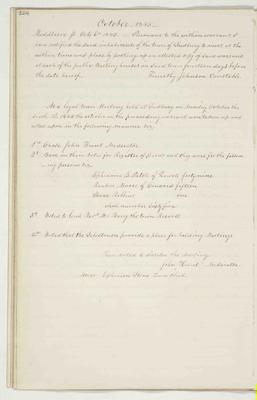 October 1845.
Middlesex ss. Octr 6th 1845. Pursuant to the within warrant I
have notified the said inhabitants of the town of Sudbury to meet at the
within time and place by posting up an attested copy of said warrant
at each of the public Meeting houses in said town fourteen days before
the date hereof. Timothy Johnson Constable.
At a legal town Meeting held at Sudbury on Monday October the
the articles in the preceeding warrant were taken up and
acted upon in the following manner viz
1st Chose John Hunt Moderator
2d Brot in their votes for Register of Deeds and they were for the follow
ing persons viz
Ephraim B. Patch of Lowell forty nine
of Concord fifteen
one
whole number Sixty five
3d Voted to
4th Voted that the Selectmen provide a place for holding Meetings
Then voted to dissolve the Meeting
John Hunt Moderator
Attest Ephraim Town Clerk